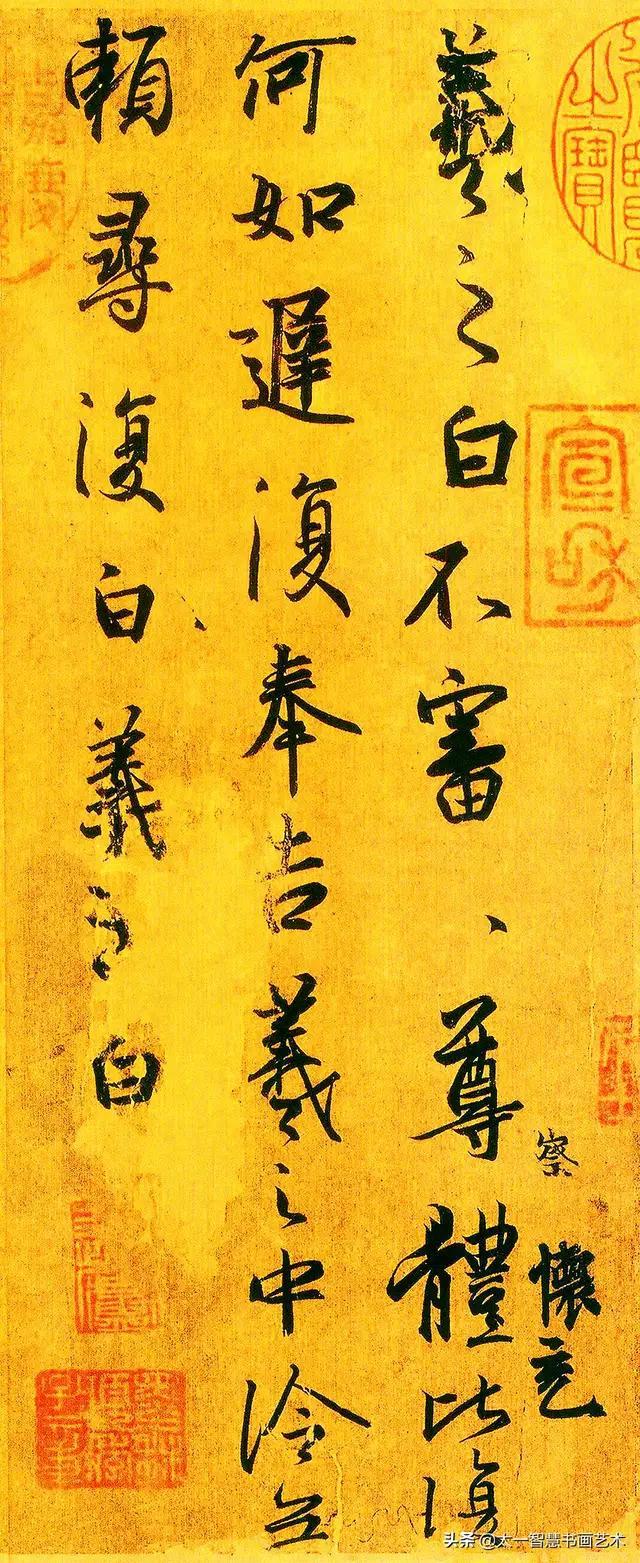 察
懷充
羲之白不審尊體比復
何如遲復奉告羲之中冷無
賴尋復白羲之白
宣和
头条 @太一智慧书画艺术